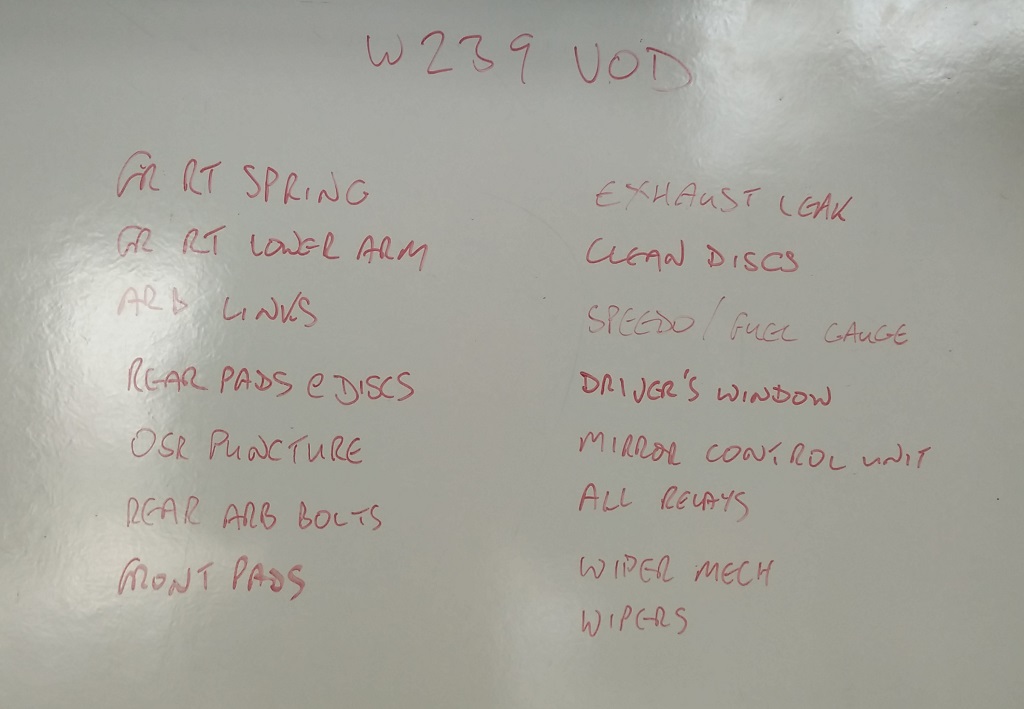 W239 VOD
FR RT SPRING
FR RT LOWER ARM
ARB LINKS
REAR PADS & DISCS
OSR PUNCTURE
REAR ARB BOLTS
FRONT PADS
EXHAUST LEAK
CLEAN DISCS
SPEEDO / FUEL GAUGE
DRIVER'S WINDOW
MIRROR CONTROL UNIT
ALL RELAYS
WIPER MECH
WIPERS